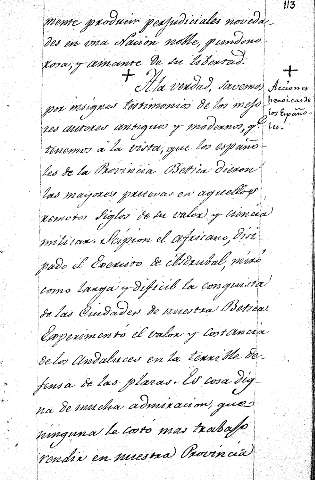 113
mente producir perjudiciales noveda-
des en una Nacion noble, pundono-
rosa, y amante de su libertad.
A la verdad, savemos
por insignes testimonios de los mejo-
res autores antiguos y modernos, qᵉ
tenemos à la vista, que los españo-
les de la Provincia Betica dieron
las mayores pruevas en aquellos
remotos siglos de su valor y ciencia
militar. Scipion el Africano, disi-
pado el Exercito de Asdrubal, miró
como larga y dificil la conquista
de las Ciudades de nuestra Betica.
Experimentó el valor y costancia
de los Andaluces en la terrible de-
fensa de las plazas. Es cosa dig-
na de mucha admiracion, que
ninguna le costo mas trabajo
rendir en nuestra Provincia
Acciones
heroicas de
los Españo-
les.